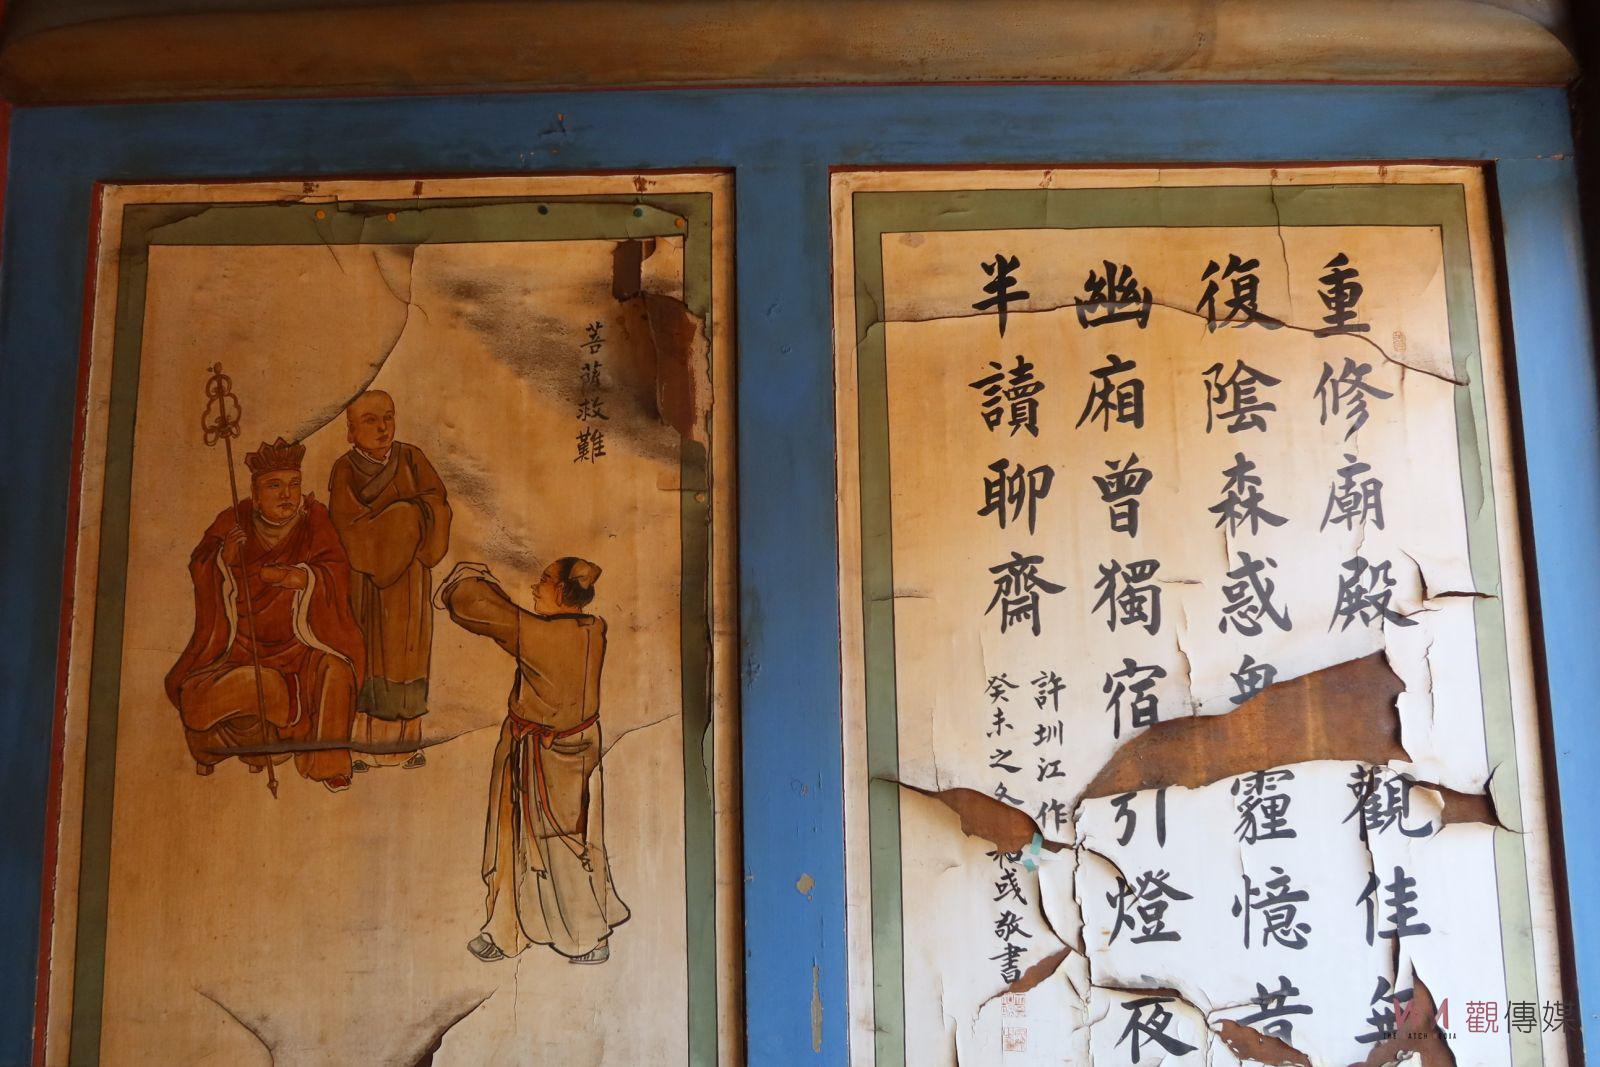 菩薩救難
重修廟殿觀佳無
復陰森惑霾憶昔
幽廂曾獨宿引燈夜
半讀聊齋
許圳江作
癸未之冬敬書
觀傳媒